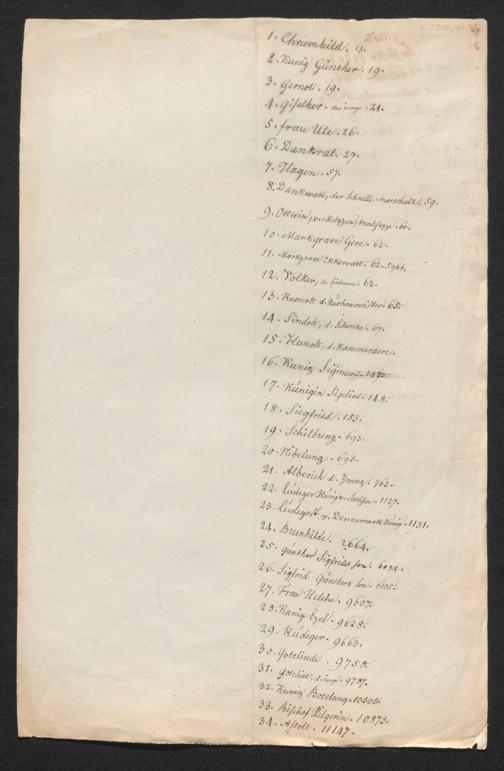 1. Chriemhild. 13.
2. Kunig Günther. 19.
3. Gernot. 19.
4. Giselher. der iunge. 21.
5. frau Ute. 26.
6. Dankrat. 27.
7. Hagen. 57.
8. Dankwart, der schnelle marschalk. 59.
9. Ortwin, v. Metzzen, truchsesse. 60.
10. Markgrave Gere. 62.
11. Markgrave Ekkewart. 62.
12. Volker, 63.
13. Rumolt d. Küchenmeister. 65.
14. Sindolt, d. Schenke. 67.
15. Hunolt, d. Kammeraere.
16. Kunig Sigmunt. 147.
17. Künigin Sigelint. 148.
18. Siegfried. 153.
19. Schilbung. 693.
20. Nibelung. 693.
21. Alberich d. Zwerg. 763.
22. Lüdeger Künig v. Sachsen. 1127.
23. Lüdegast v. Dennemark Künig. 1131.
24. Brunhilde. 1664.
25. Günther Sigfrides son.
26. Sigfrid Günthers son. 6105.
27. Frau Helche. 9607.
28. Kunig Ezel. 9628.
29. Rüdeger. 9663.
30. Gotelinde. 9758.
31. Gotelint, d. iunge. 9787.
32. Kunig Botelung. 10508.
33. Bischof Pilgerin. 10873.
34. Astolt. 11147.